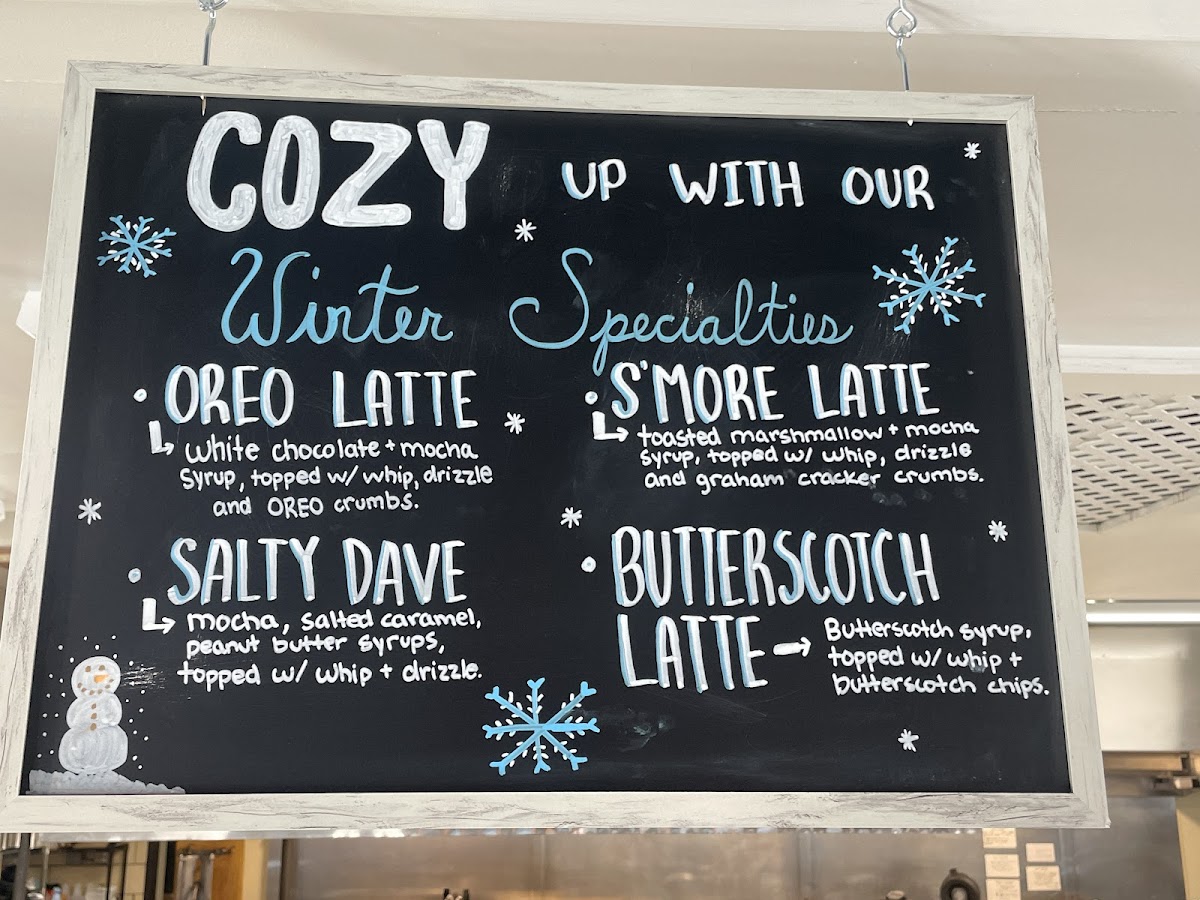 COZY UP WITH OUR
Winter Specialties
OREO LATTE
white chocolate + mocha
syrup, topped w/ whip, drizzle
and OREO crumbs.
S'MORE LATTE
toasted marshmallow + mocha
syrup, topped w/ whip, drizzle
and graham cracker crumbs.
SALTY DAVE
mocha, salted caramel,
peanut butter syrups,
topped w/ whip + drizzle.
BUTTERSCOTCH
LATTE
Butterscotch syrup,
topped w/ whip +
butterscotch chips.